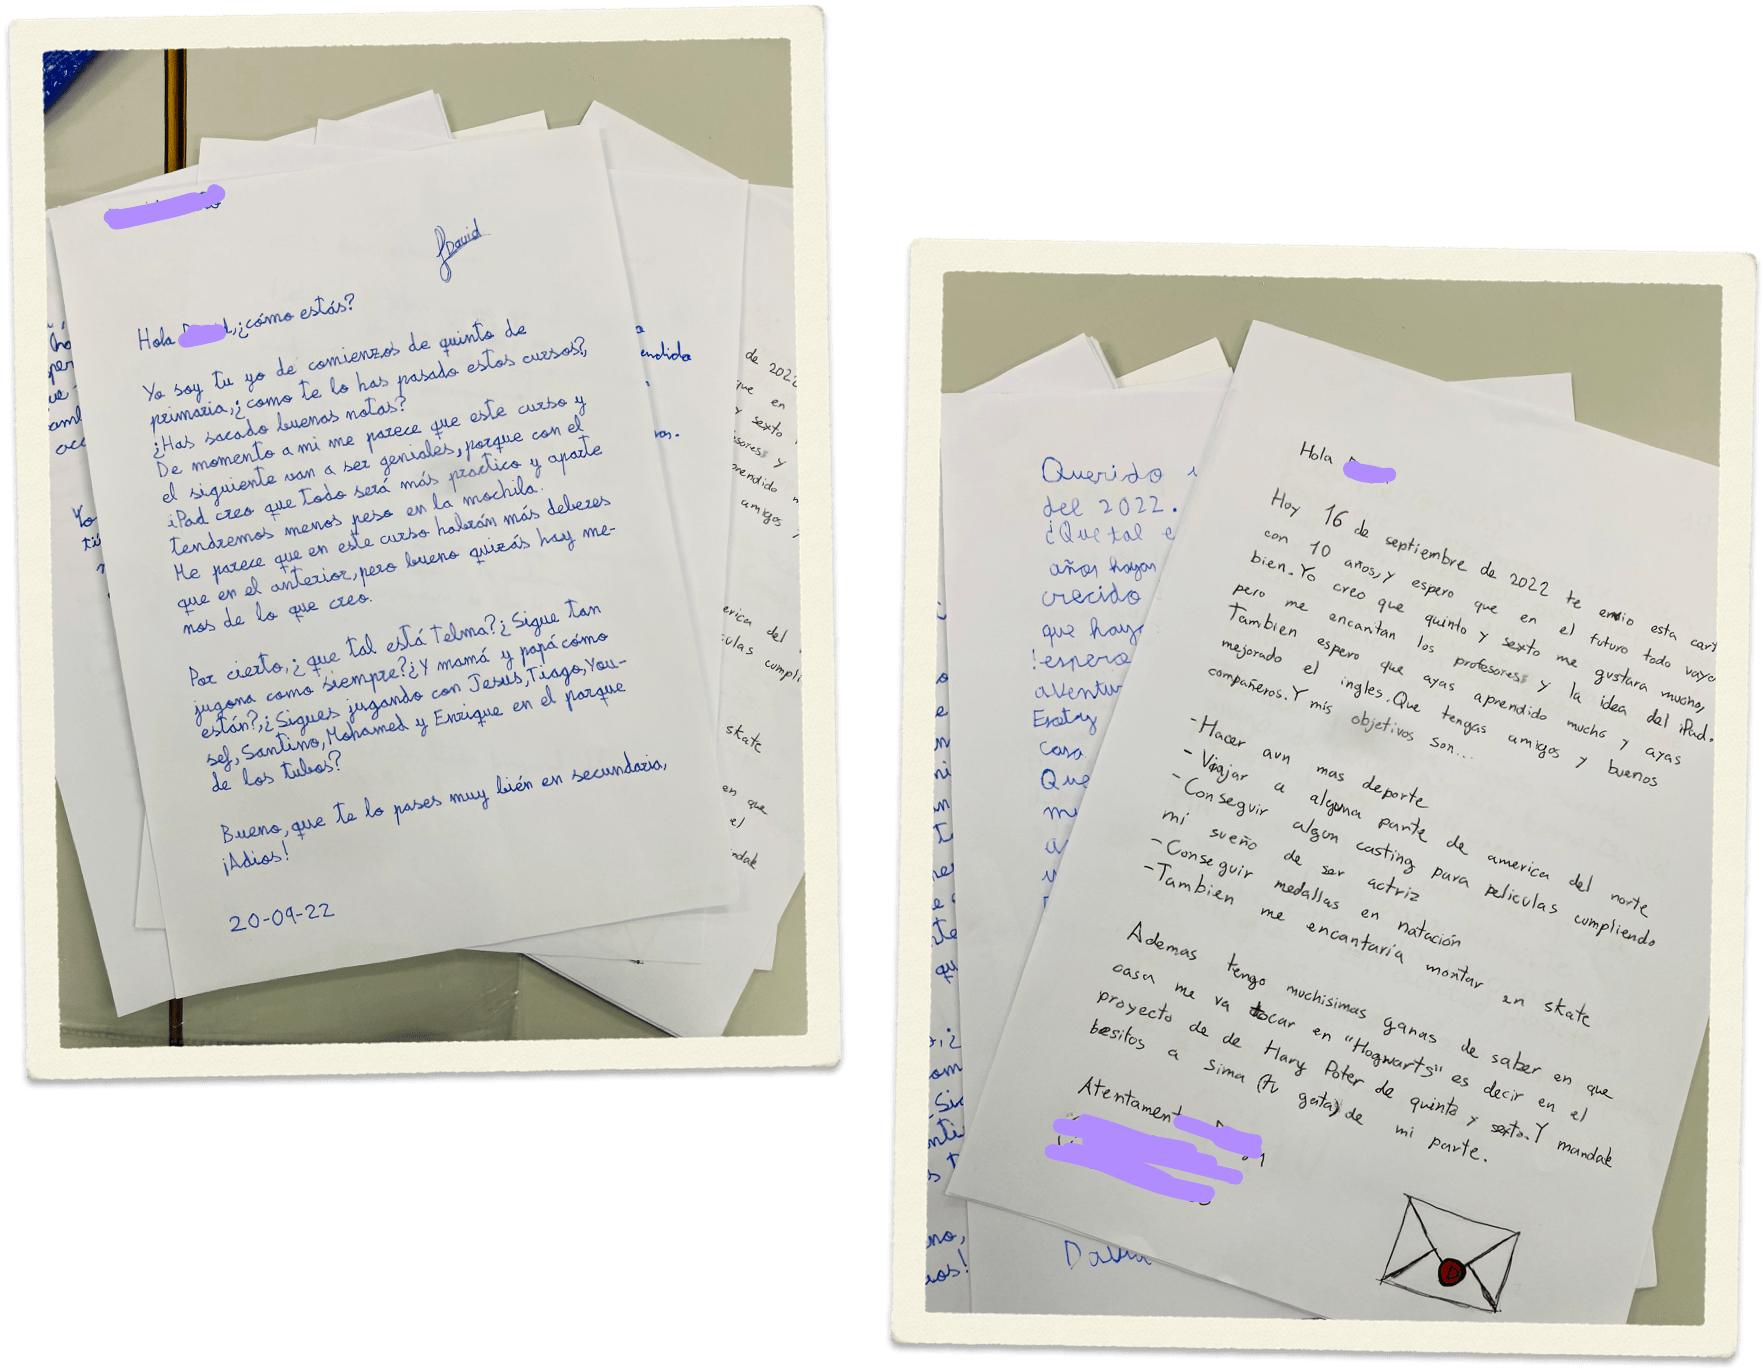 David
Hola
¿cómo estás?
Yo soy tu yo de comienzos de quinto de
primaria, ¿como te lo has pasado estos cursos?,
¿Has sacado buenas notas?
De momento a mi me parece que este curso y
el siguiente van a ser geniales, porque con el
iPad creo que todo será más practico y aparte
tendremos menos peso en la mochila.
Me parece que en este curso habrán más deberes
que en el anterior, pero bueno quizás hay me-
nos de lo que creo.
Por cierto, ¿que tal está Telma? ¿Sigue tan
jugona como siempre? ¿Y mamá y papá cómo
están?, ¿Sigues jugando con Jesus, Tiago, You-
sef, Santino, Mohamed y Enrique en el parque
de los tubos?
Bueno, que te lo pases muy bién en secundaria,
¡Adios!
20-09-22
endida
de 2022
que en
y sexto
amigos y
erica del
skate
en que
el
mandak
Hola
Hoy 16 de septiembre de 2022 te envio esta cart
con 10 años, y espero que en el futuro todo vaya
bien. Yo creo que quinto y sexto me gustara mucho,
pero me encantan los profesores y la idea del iPad.
Tambien espero que ayas aprendido mucho y ayas
mejorado el ingles. Que tengas amigos y buenos
compañeros. Y mis objetivos son...
-Hacer aun mas deporte
-Viajar a alguna parte de america del norte
-Conseguir algun casting para peliculas cumpliendo
mi sueño de ser actriz
-Conseguir medallas en natación
-Tambien me encantaría montar en skate
Ademas tengo muchisimas ganas de saber en que
casa me va tocar en "Hogwarts" es decir en el
proyecto de de Hary Poter de quinto y sexto. Y mandale
besitos a sima (tu gata) de mi parte.
Atentament
D
Querido
del 2022.
¿Que tal e
años hayan
crecido
que haya
!espero
aventur
Estoy
casa
Que
David